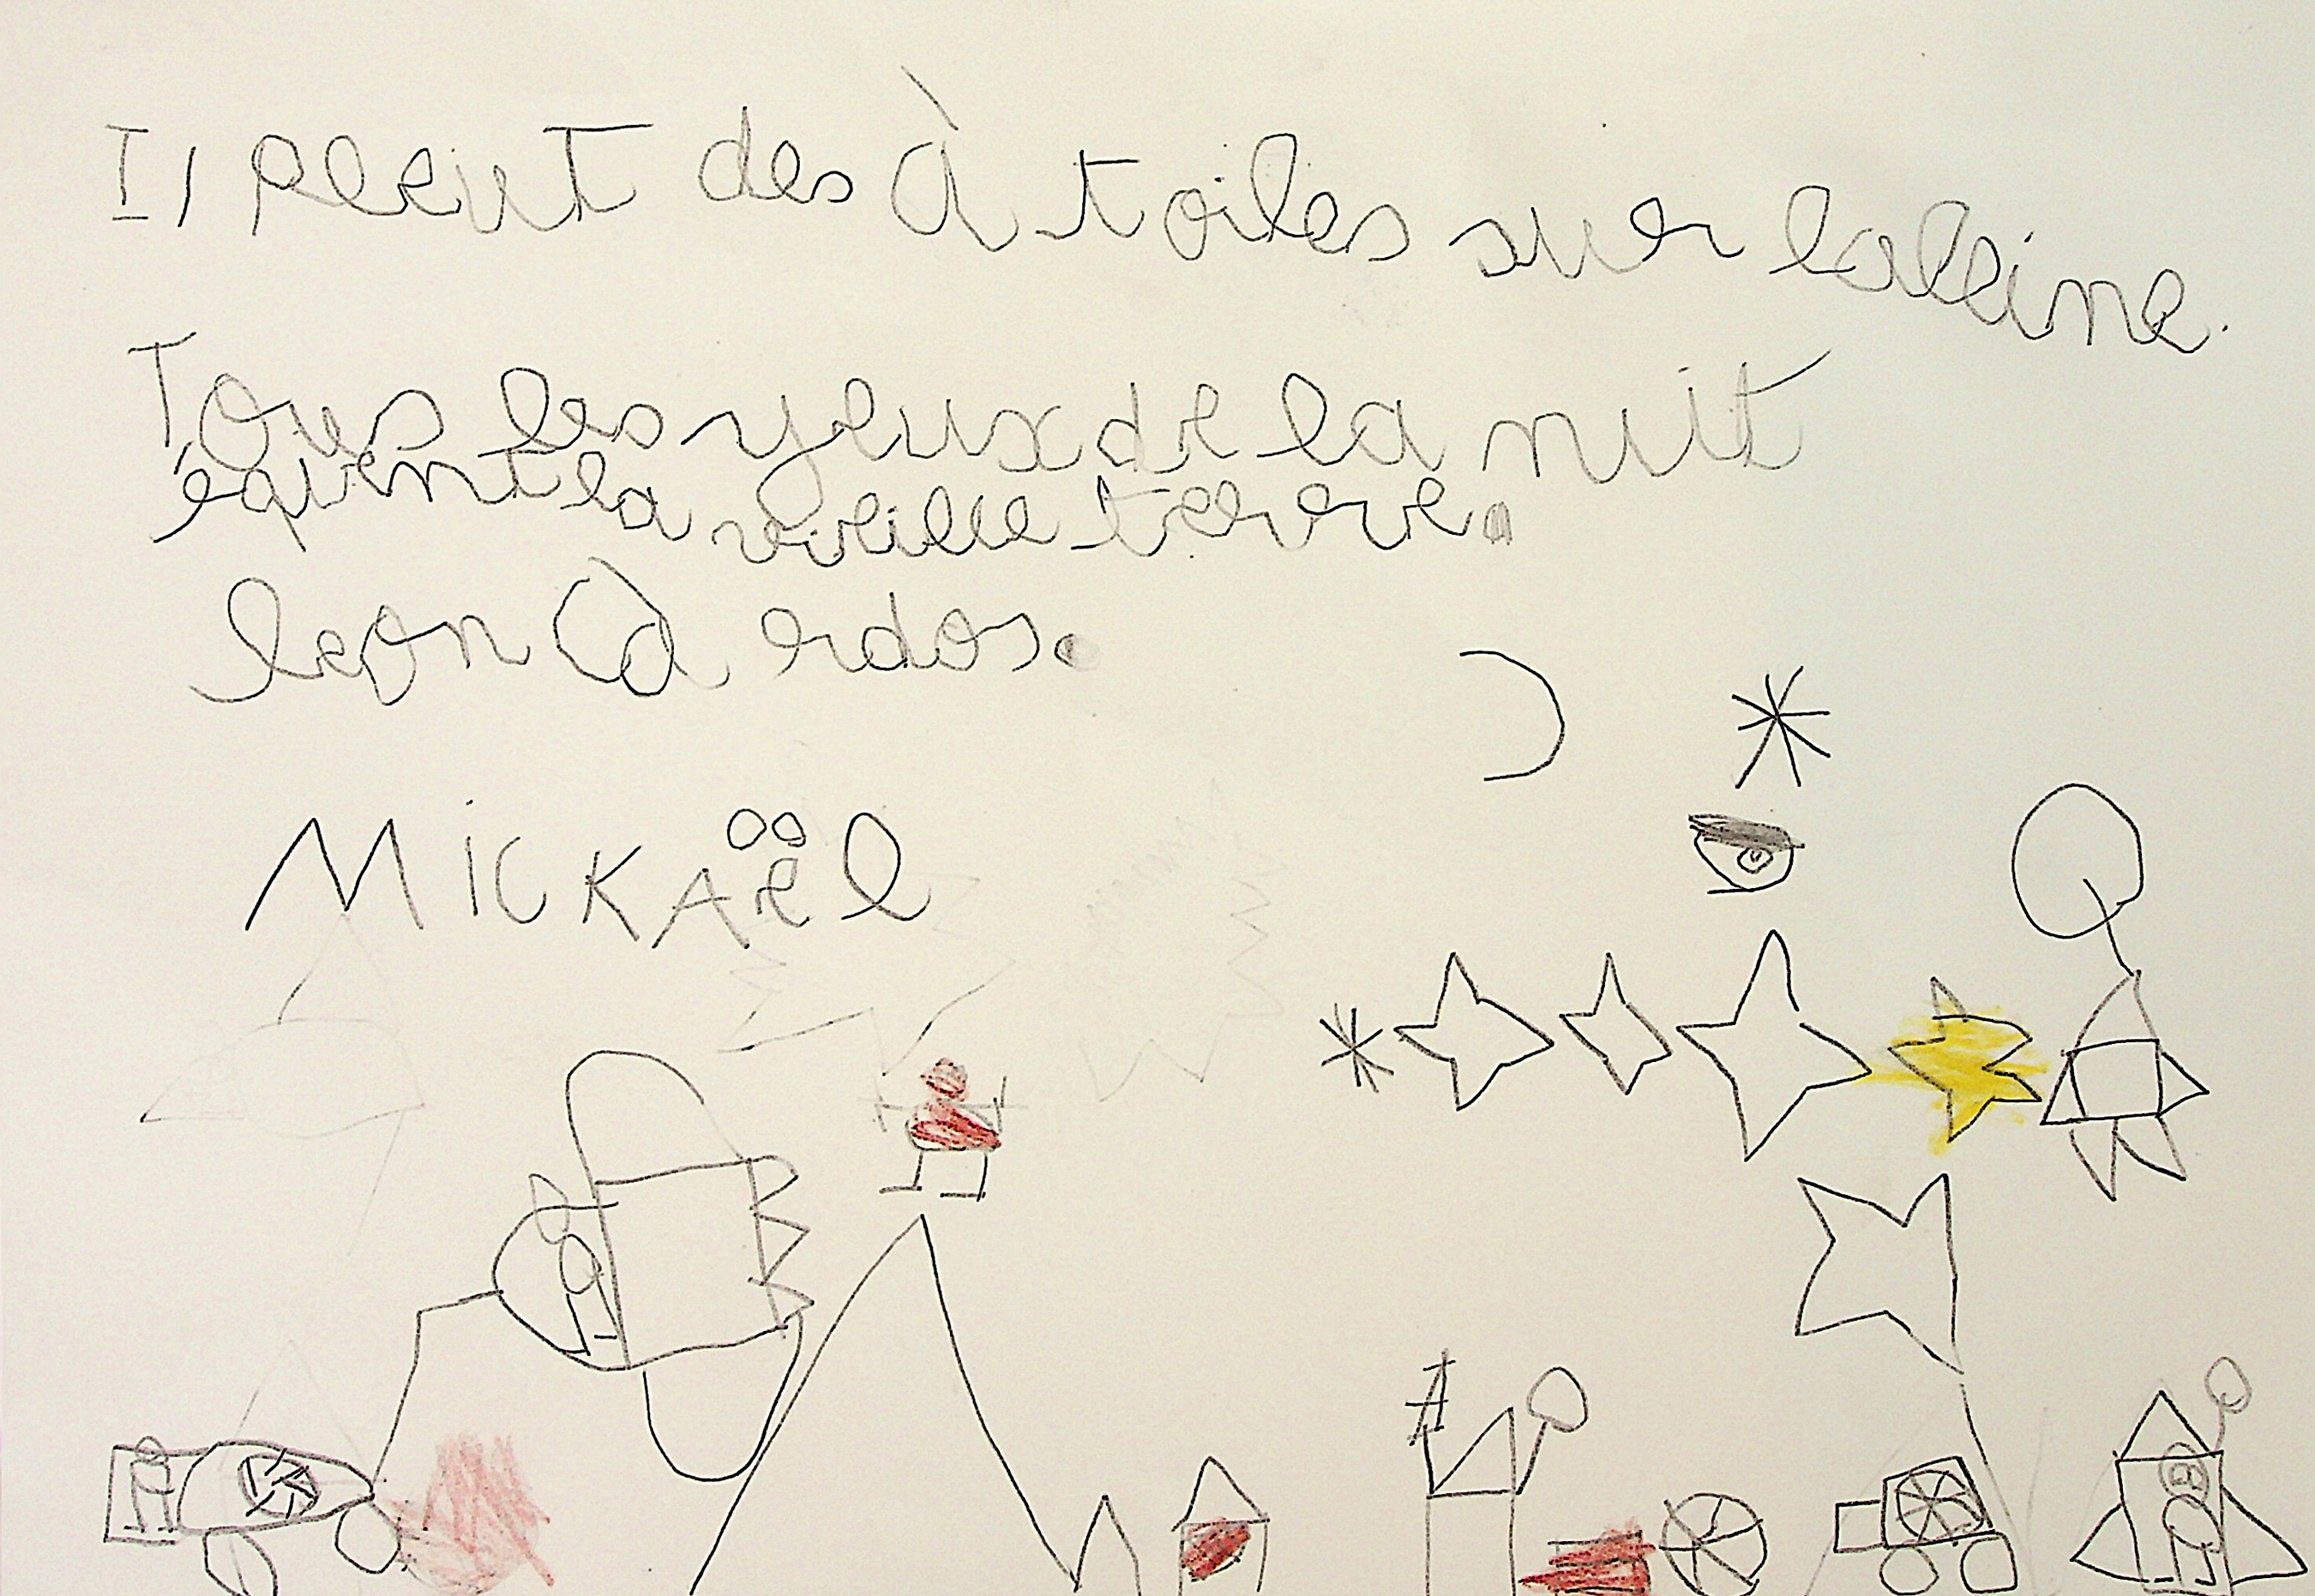 Il pleut des à toiles sur lapleine.
Tous les yeux de la nuit
équirent la vieille terre.
leon à rdos.
MicKAël